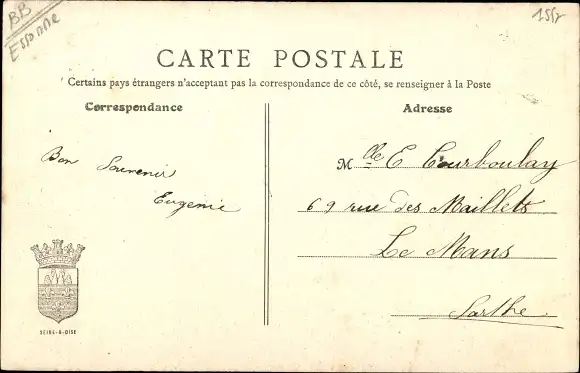 BB
Essonne
155r
CARTE POSTALE
Certains pays étrangers n'acceptant pas la correspondance de ce côté, se renseigner à la Poste
Correspondance
Bon Souvenir
Eugenie
SEINE-&-OISE
Adresse
Mlle E Courboulay
69 rue des Maillets
Le Mans
Sarthe